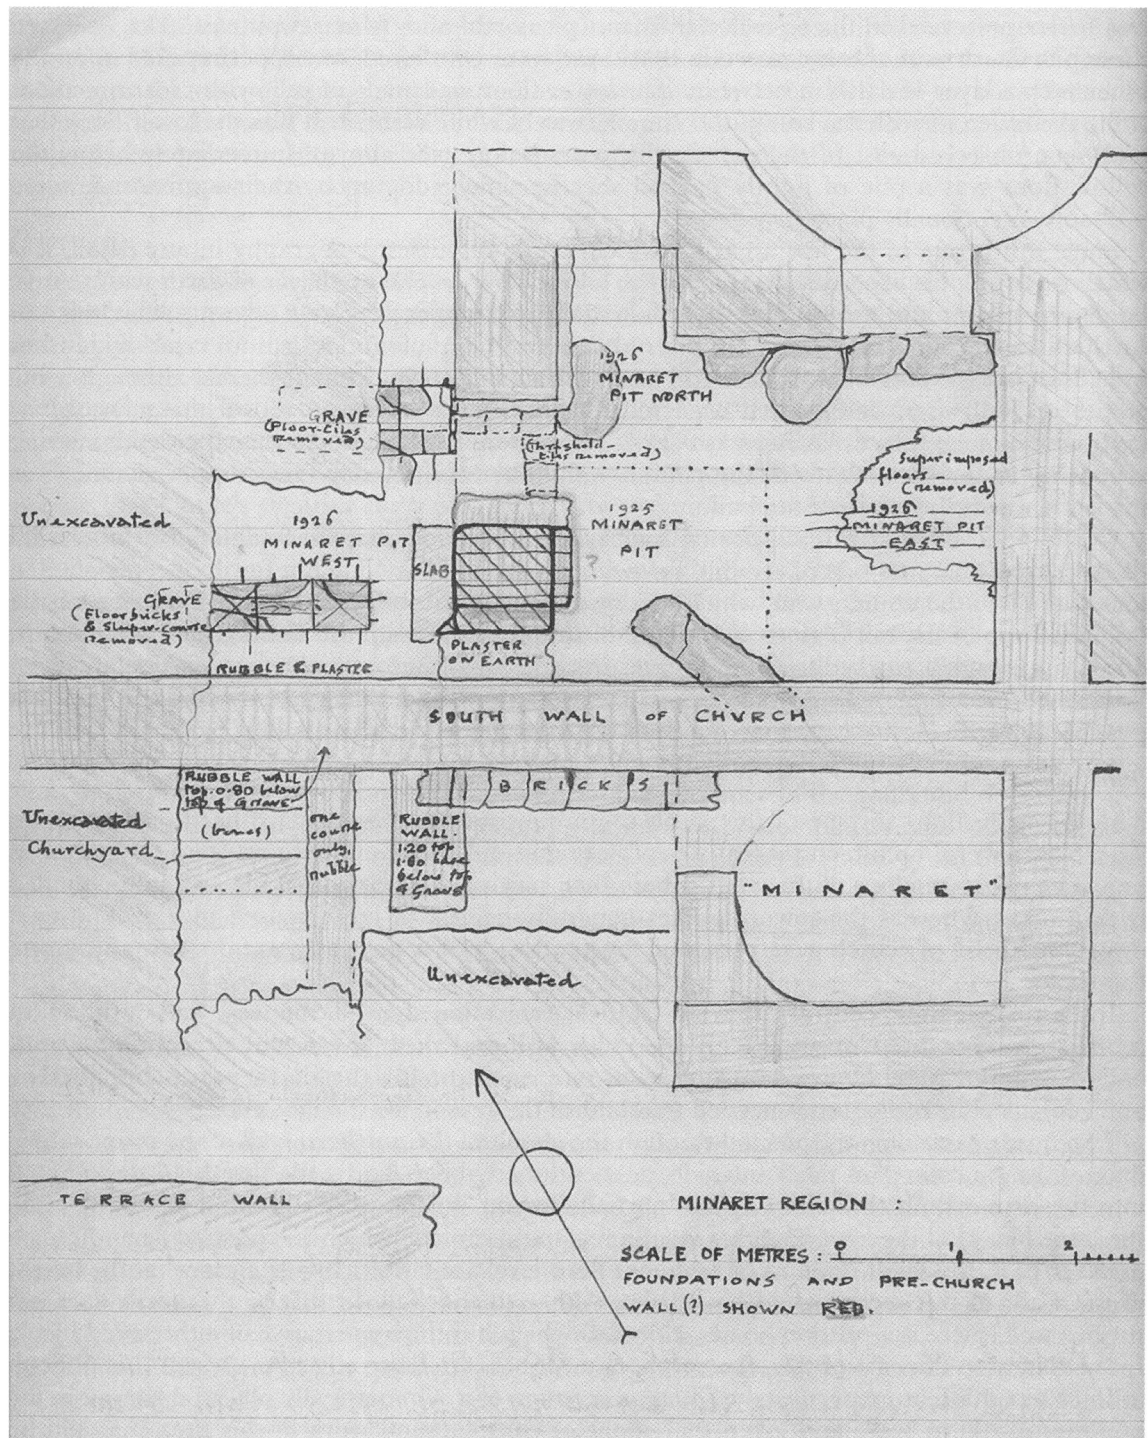 1926
MINARET
PIT NORTH
GRAVE
(Floor-tiles
removed)
(Threshold-
tiles removed)
Superimposed
floors-
(removed)
1926
MINARET PIT
EAST
Unexcavated
1926
MINARET PIT
WEST
1925
MINARET
PIT
SLAB
?
GRAVE
(Floor bricks
& Sleeper-course
removed)
RUBBLE & PLASTER
PLASTER
ON EARTH
SOUTH WALL OF CHVRCH
RUBBLE WALL
top. 0.80 below
top of Grave
(bones)
Unexcavated
Churchyard
one
course
only,
rubble
BRICKS
RUBBLE
WALL.
1.20 top
1.80 base
below top
of Grave
"MINARET"
Unexcavated
TERRACE WALL
MINARET REGION :
SCALE OF METRES : 0 1 2
FOUNDATIONS AND PRE-CHURCH
WALL (?) SHOWN RED.